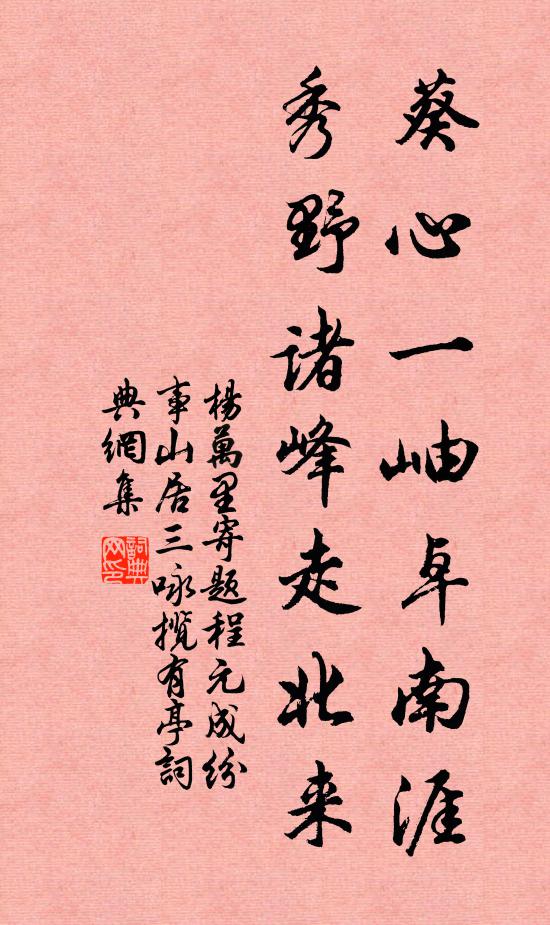 葵心一岫卓南涯
秀野诸峰走北来
楊萬里寄題程元成纷
事山居三咏揽有亭詞
典網集
詞典
网印